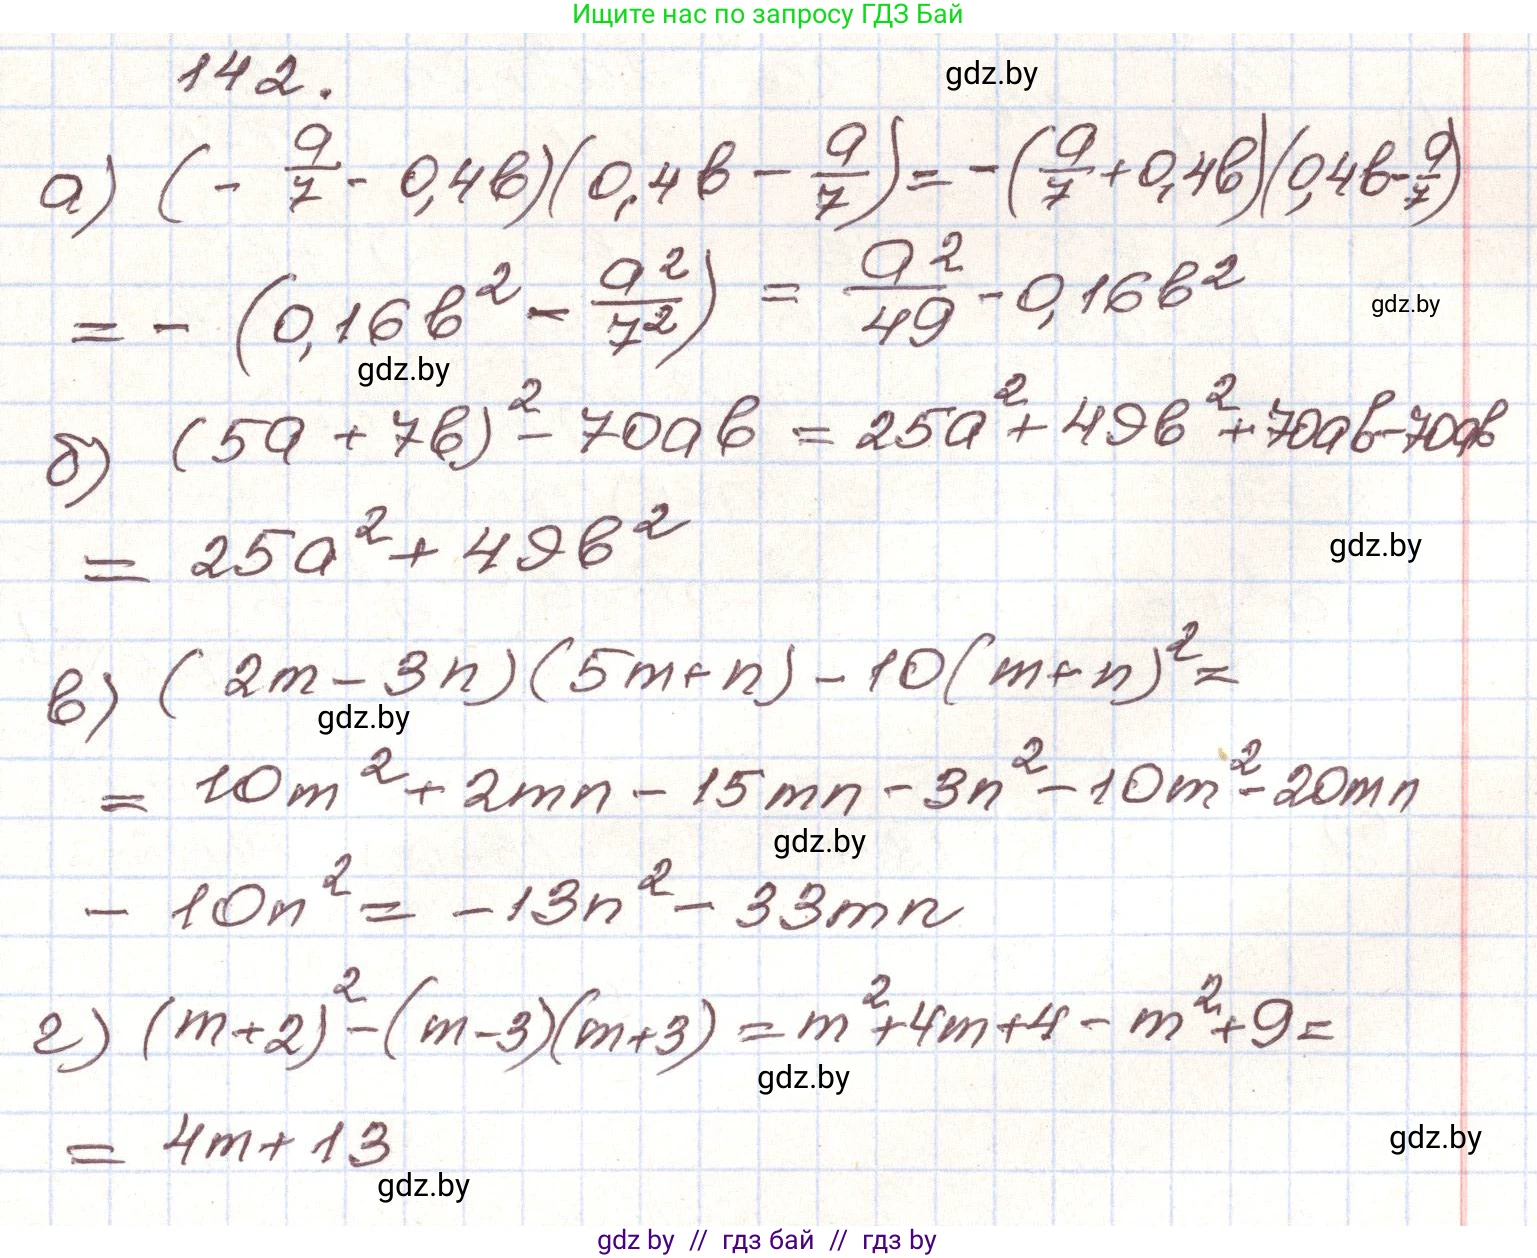 Ищите нас по запросу ГДЗ Бай
142.
gdz.by
а) (- a/7 - 0,4b)(0,4b - a/7) = -(a/7 + 0,4b)(0,4b - a/7)
= - (0,16b² - a²/7²) = a²/49 - 0,16b²
gdz.by
gdz.by
б) (5a + 7b)² - 70ab = 25a² + 49b² + 70ab - 70ab
= 25a² + 49b²
gdz.by
в) (2m - 3n)(5m + n) - 10(m + n)² =
gdz.by
= 10m² + 2mn - 15mn - 3n² - 10m² - 20mn
gdz.by
- 10n² = -13n² - 33mn
г) (m + 2)² - (m - 3)(m + 3) = m² + 4m + 4 - m² + 9 =
gdz.by
= 4m + 13
gdz.by
gdz.by
gdz by // гдз бай // гдз by